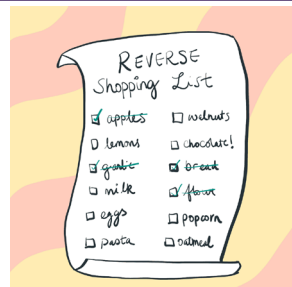 REVERSE
Shopping List
apples
lemons
garlic
milk
eggs
pasta
walnuts
chocolate!
bread
flour
popcorn
oatmeal